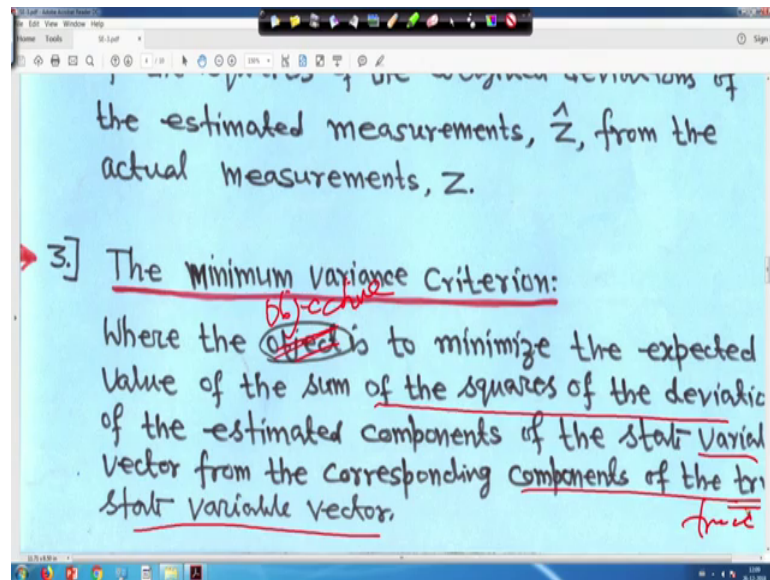 File Edit View Window Help
Home Tools SE-3.pdf ×
Sign
of the squares of the weighted deviations of
the estimated measurements, ẑ, from the
actual measurements, z.
3.] The minimum variance Criterion:
objective
Where the object is to minimize the expected
value of the sum of the squares of the deviatio
of the estimated components of the state variab
vector from the corresponding components of the tr
true
state variable vector.